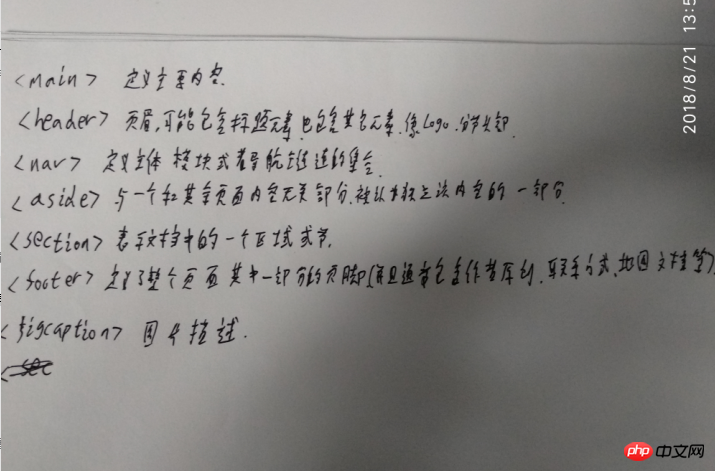 <main> 定义主要内容.
<header> 页眉,可能包含标题元素,也包含其它元素,像Logo,分节头部.
<nav> 定义主体模块或者导航链接的集合
<aside> 与一个和其余页面内容无关部分,被认为独立该内容的一部分.
<section> 表示文档中的一个区域或节.
<footer> 定义了整个页面其中一部分的页脚(并且通常包含作者序列,联系方式,地图文档等)
<figcaption> 图片描述.
2018/8/21 13:5
php 中文网